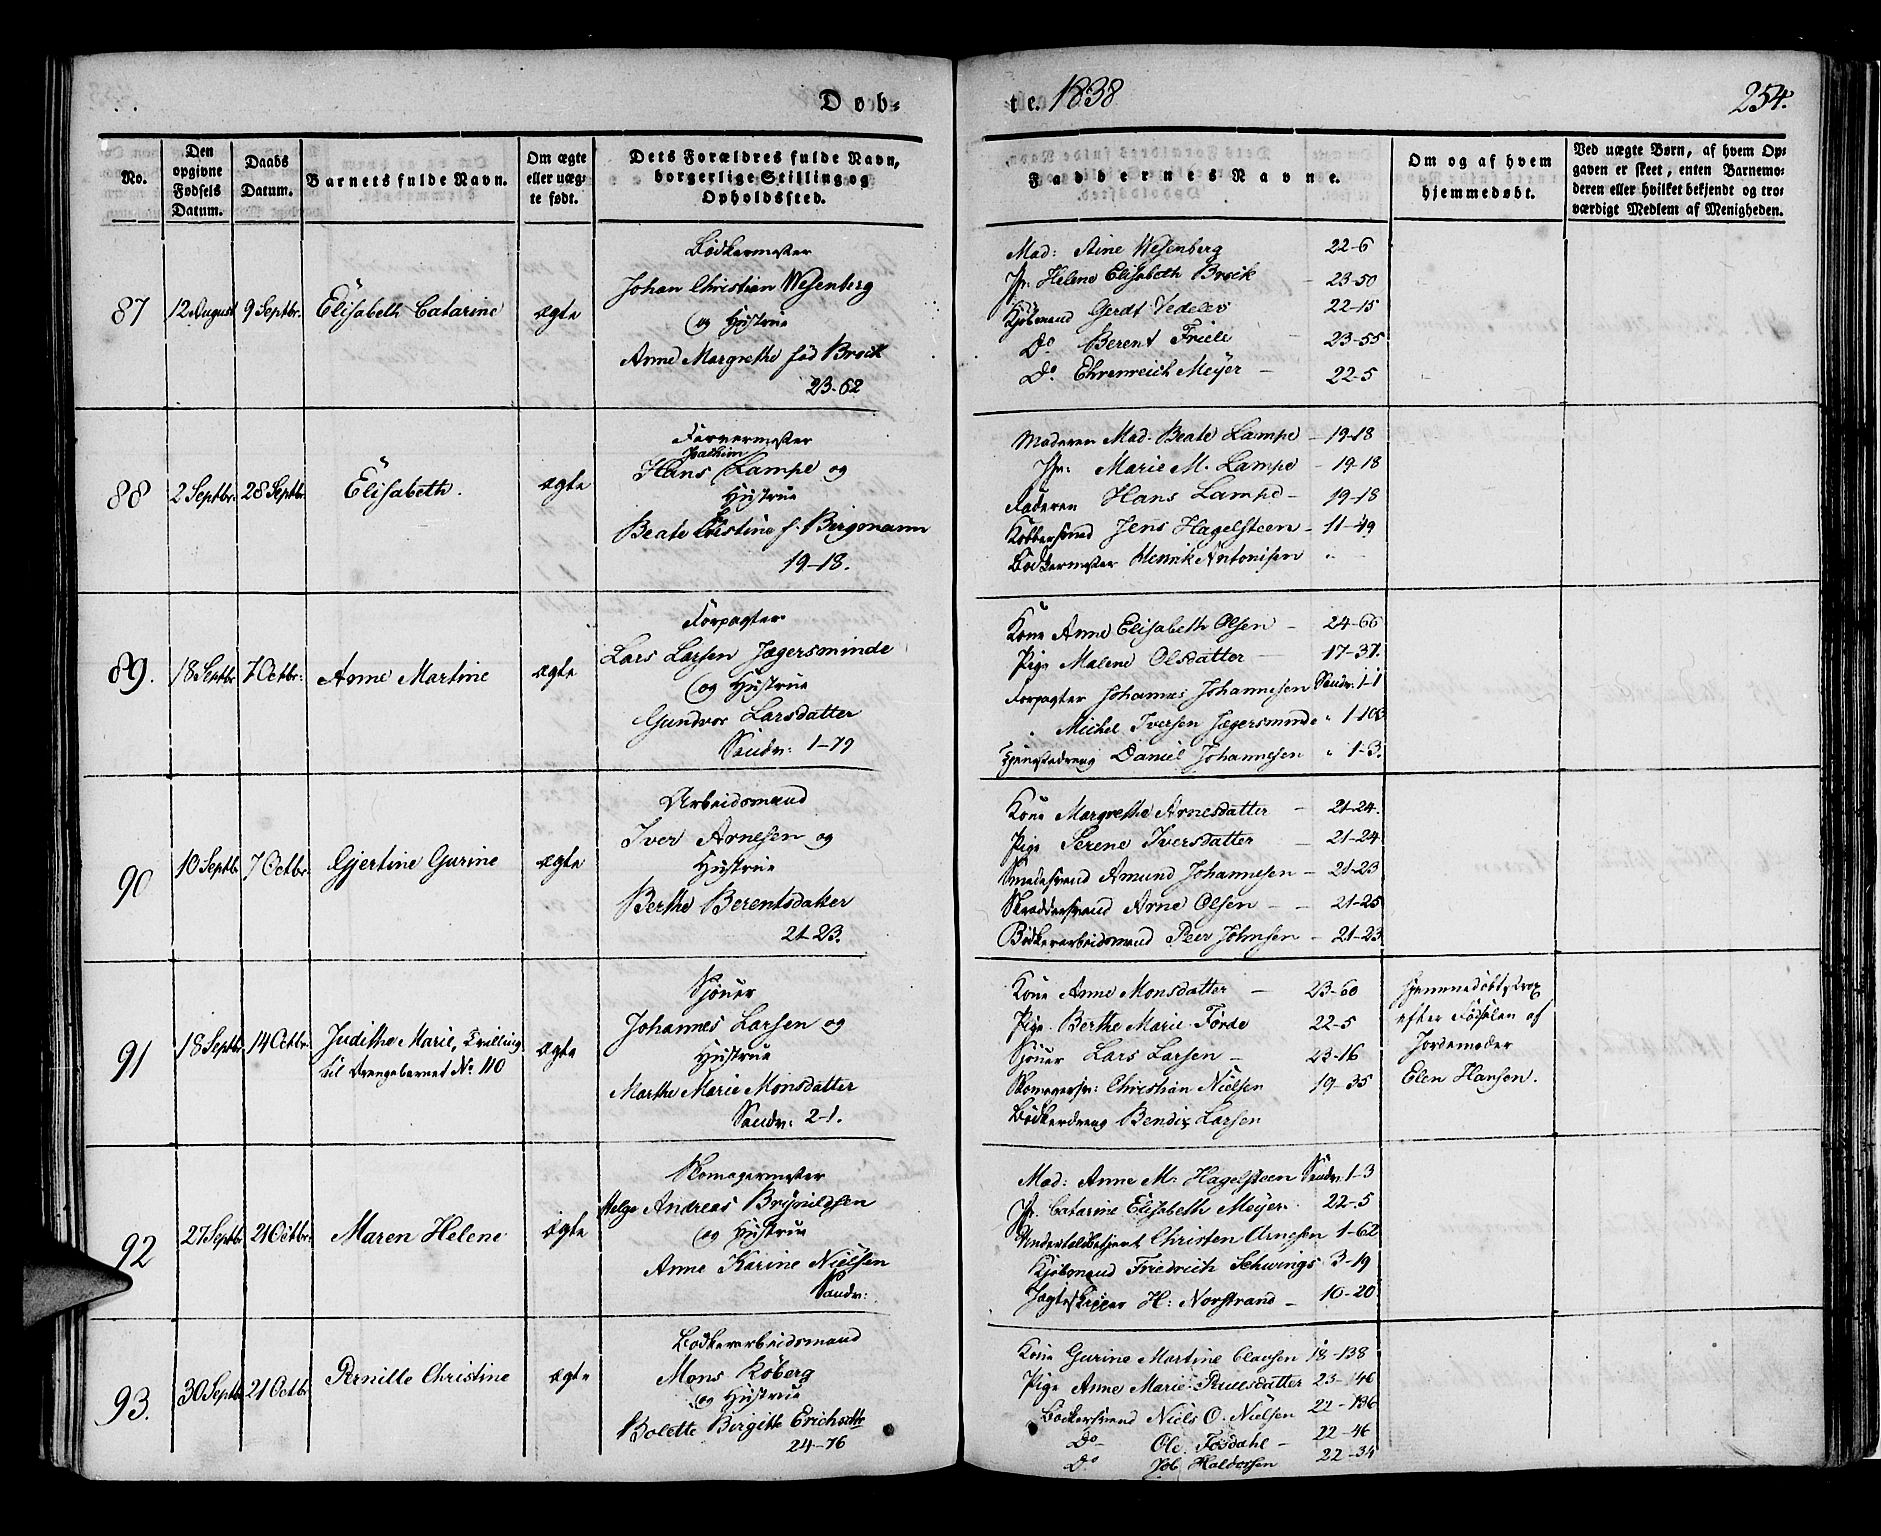 Døb=
te. 1838
254.
No.
Den opgivne Fødsels Datum.
Daabs Datum.
Barnets fulde Navn.
Om ægte eller uægte født.
Dets Forældres fulde Navn, borgerlige Stilling og Opholdssted.
Faddernes Navne.
Om og af hvem hjemmedøbt.
Ved uægte Børn, af hvem Opgaven er skeet, enten Barnemoderen eller hvilket bekjendt og troværdigt Medlem af Menigheden.
87 12 August 9 Septbr. Elisabeth Catarine ægte
Bødkermester
Johan Christian Wesenberg
og Hustrue
Anne Margrethe fød Brock
23-62
Mad: Stine Wesenberg 22-6
Jfr. Helene Elisabeth Brock - 23-50
Kjøbmand Gerdt Vedeler 22-15
Do Berent Friele - 23-55
Do. Ehrenreich Meyer - 22-5
88 2 Septbr. 28 Septbr. Elisabeth. ægte
Farvermester
Hans Joachim Lampe og
Hustrue
Beate Cristine f. Bergmann
19-18.
Moderen Mad. Beate Lampe - 19-18
Jfr: Marie M. Lampe - 19-18
Faderen Hans Lampe - 19-18
Kobbersvend Jens Hagelsteen - 11-49
Bødkermester Henrik Antonisen " -
89. 18 Septbr 7 Octbr: Anne Martine ægte
Forpagter
Lars Larsen Jægersminde
og Hustrue
Gundvor Larsdatter
Sandv: 1-79
Kone Anne Elisabeth Olsen - 24-66
Pige Malene Olsdatter - 17-37.
Forpagter Johannes Johannesen Sandv. 1-1
" Michel Iversen Jægersminde " 1-108
Tjenestedreng Daniel Johannesen " 1-3.
90 10 Septbr 7 Octbr. Gjertine Gurine ægte
Arbeidsmand
Iver Arnesen og
Hustrue
Berthe Berentsdatter
21-23.
Kone Margrethe Arnesdatter - 21-24.
Pige Serene Iversdatter - 21-24
Smedesvend Amund Johannesen - 21-23
Skreddersvend Arne Olsen - - 21-25
Bødkerarbeidsmand Peer Johnsen - 21-23
91 18 Septbr. 14 Octbr. Judithe Marie, Tvilling
til Drengebarnet No 110 ægte
Sjouer
Johannes Larsen og
Hustrue
Marthe Marie Monsdatter
Sandv: 2-1.
Kone Anne Monsdatter - 23-60
Pige. Berthe Marie Førde 22-5
Sjouer Lars Larsen - 23-16
Skomagersv: Christian Nielsen 19-35
Bødkerdreng Bendix Larsen
Hjemmedøbt strax
efter Fødselen af
Jordemoder
Elen Hansen.
92 27 Septbr 21 Octbr: Maren Helene ægte
Skomagermester
Helge Andreas Brynildsen
og Hustrue
Anne Karine Nielsen
Sandv:
Mad: Anne M. Hagelsteen Sandv. 1-3
Jfr. Catarine Elisabeth Meyer. 22-5
Undertoldbetjent Christen Arnesen 1-62
Kjøbmand Friedrich Schwings 3-19
Jagteskipper H: Norstrand - 10-20
93. 30 Septbr 21 Octbr Pernille Christine ægte
Bødkerarbeidsmand
Mons Køberg
og Hustrue
Bolette Birgitte Erichsdtr
24-76
Kone Gurine Martine Clausen 18-138
Pige Anne Marie Poulsdatter 23-146
Bødkersvend Niels O. Nielsen 22-136
Do Ole Fosdahl - 22-46
Do Job Haldorsen 22-34